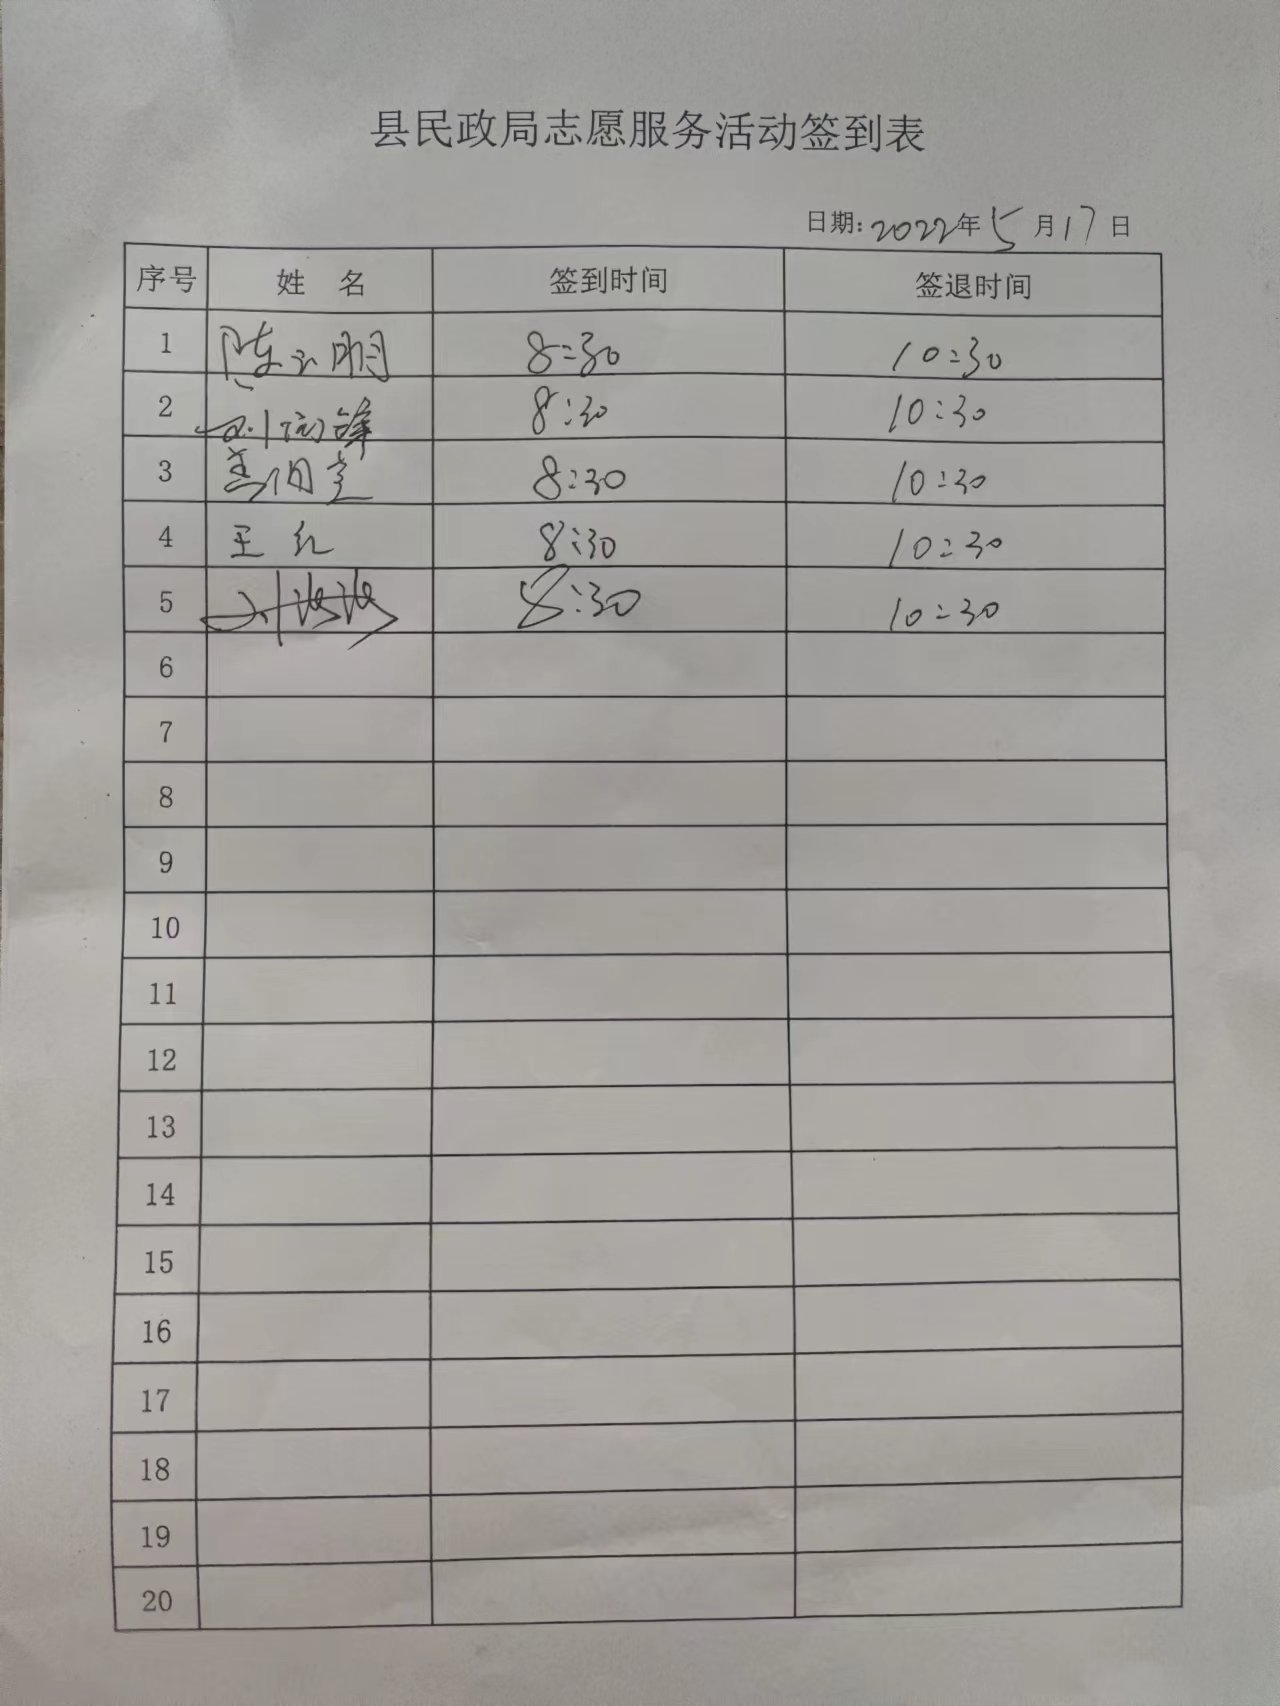 县民政局志愿服务活动签到表
日期: 2022年5月17日
序号 姓 名 签到时间 签退时间
1 陈云明 8:30 10:30
2 刘 锋 8:30 10:30
3 8:30 10:30
4 王红 8:30 10:30
5 刘波波 8:30 10:30
6
7
8
9
10
11
12
13
14
15
16
17
18
19
20